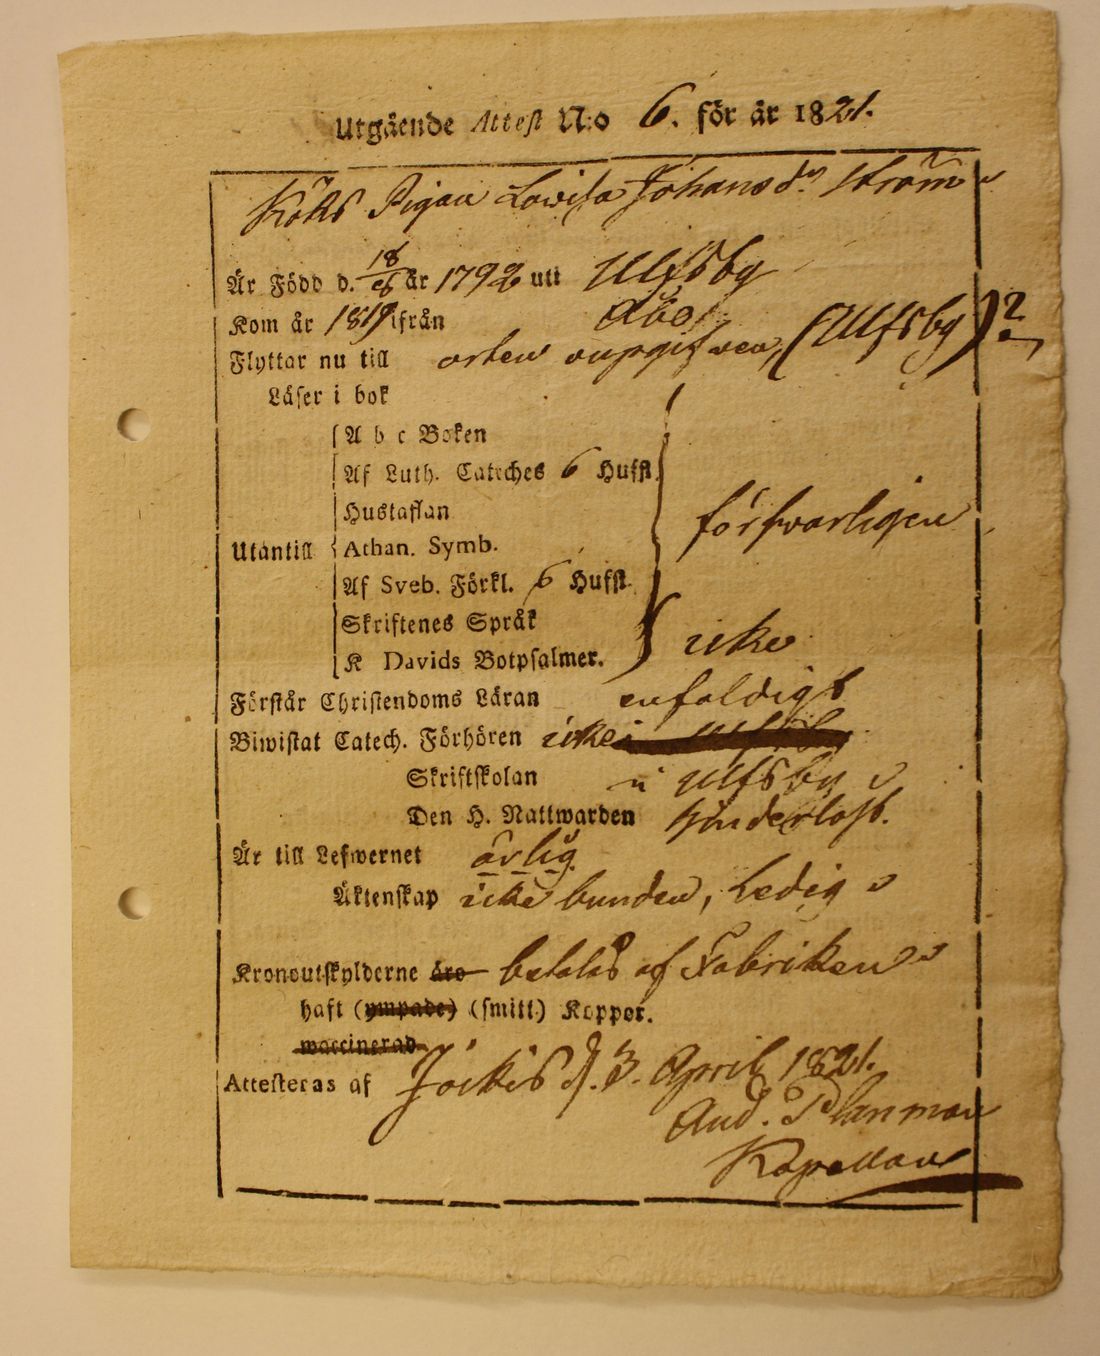 Utgående Attest N:o 6. för år 1821.
Köks Pigan Lovisa Johansdr Ström
Är Född d. 18/6 år 1792 uti Ulfsby
Kom år 1819 ifrån Åbo
Flyttar nu till orten ouppgifven, (Ulfsby)?
Läser i bok
A b c Boken
Af Luth. Cateches 6 Hufst.
Hustaflan
försvarligen
Utantill Athan. Symb.
Af Sveb. Förkl. 6 Hufst.
Skriftenes Språk
K Davids Botpsalmer. icke
Förstår Christendoms Läran enfaldigt
Biwistat Catech. Förhören icke i Ulfsby
Skriftskolan i Ulfsby
Den H. Nattwarden hinderlöst.
Är till Lefwernet ärlig
Äktenskap icke bunden, Ledig
Kronoutskylderne äro betalas af Fabriken
haft (ympade) (smitt.) Koppor.
waccinerad
Attesteras af Jockis d. 3. April 1821.
And. Planman
Kapellan